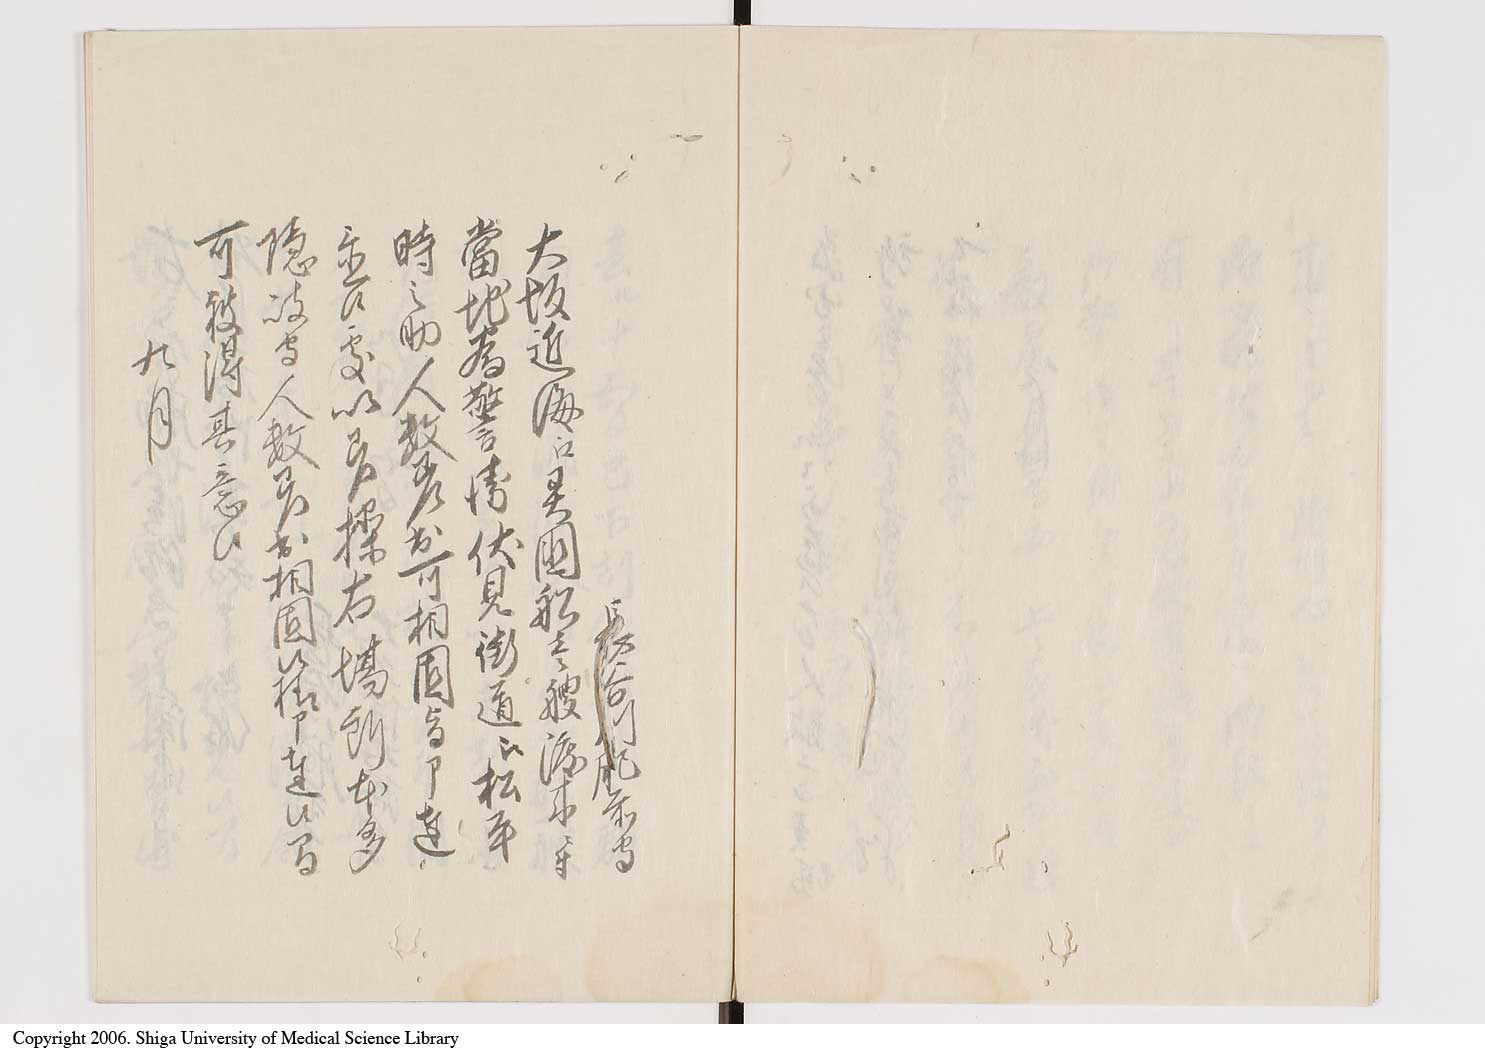 長谷川肥前守
大坂近海江異国船壱艘渡来ニ付
當地為警衛伏見街道江松平
時之助人数差出可相固旨申達
置候処以早操右場所本多
隠岐守人数差出相固候様申達候間
可被得其意候
九月
Copyright 2006. Shiga University of Medical Science Library